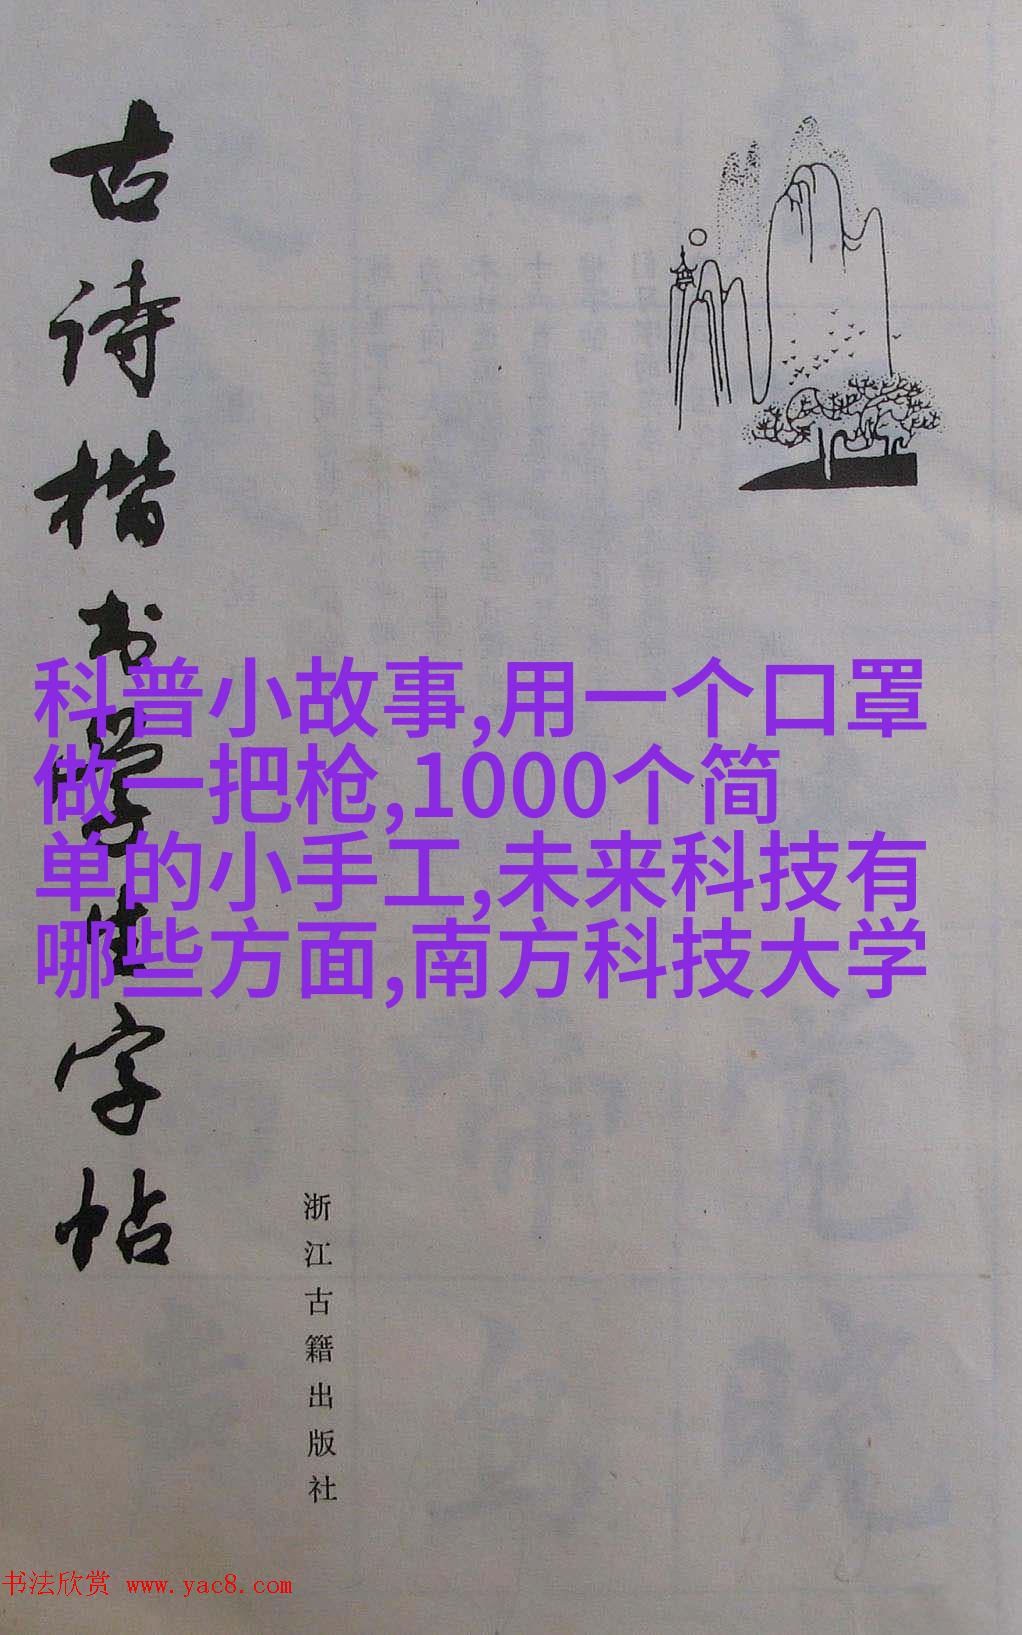 古诗楷书学生字帖
科普小故事,用一个口罩
做一把枪,1000个简
单的小手工,未来科技有
哪些方面,南方科技大学
浙江古籍出版社
书法欣赏 www.yac8.com